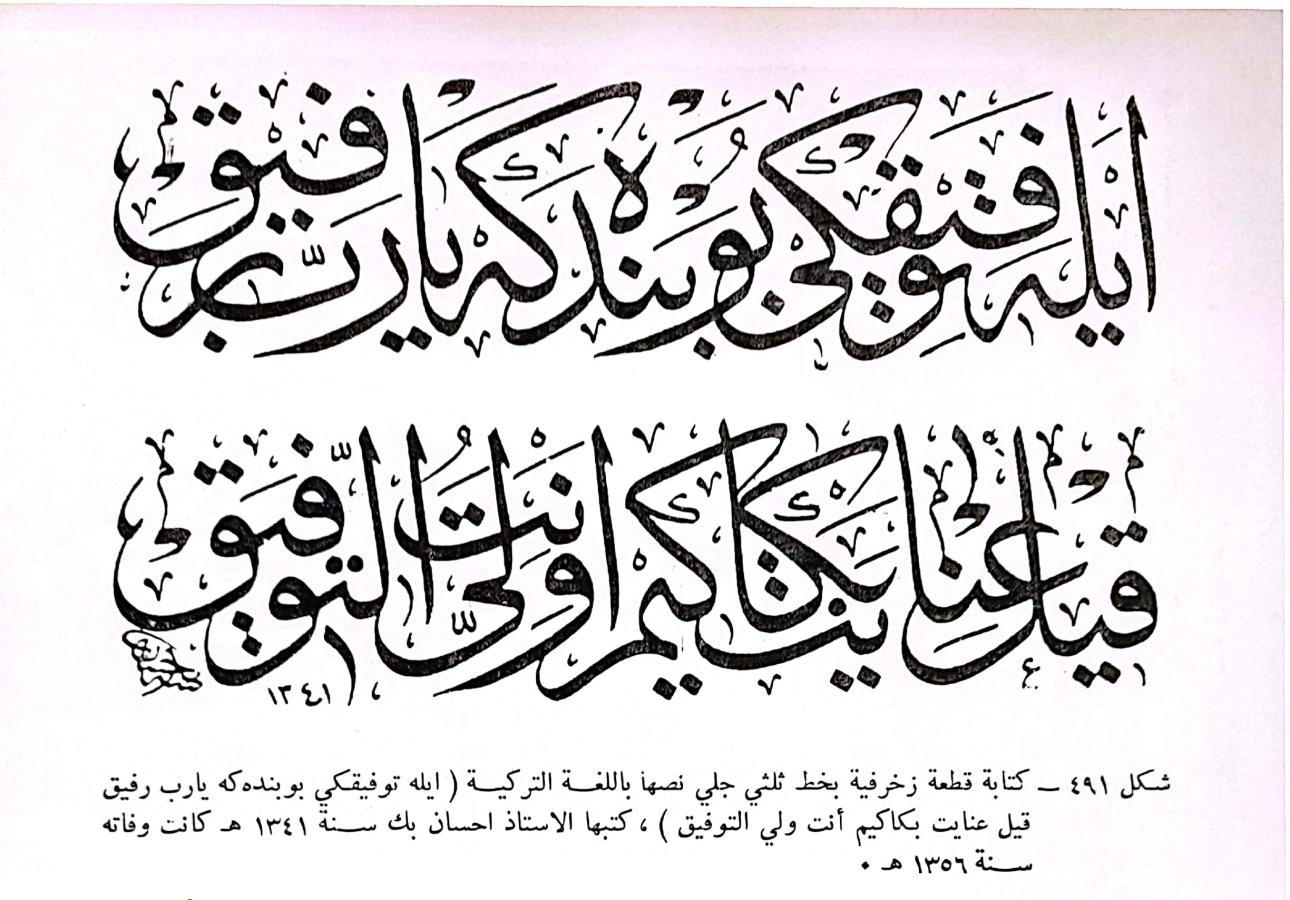 ايله توفيقكي بو بنده كه يارب رفيق
قيل عنايت بكا كيم انت ولي التوفيق
١٣٤١
شكل ٤٩١ ــ كتابة قطعة زخرفية بخط ثلثي جلي نصها باللغـــة التركيـــة ( ايله توفيقكي بوبنده‌كه يارب رفيق
قيل عنايت بكاكيم أنت ولي التوفيق ) ، كتبها الاستاذ احسان بك ســـنة ١٣٤١ هـ كانت وفاته
ســـنة ١٣٥٦ هـ ٠